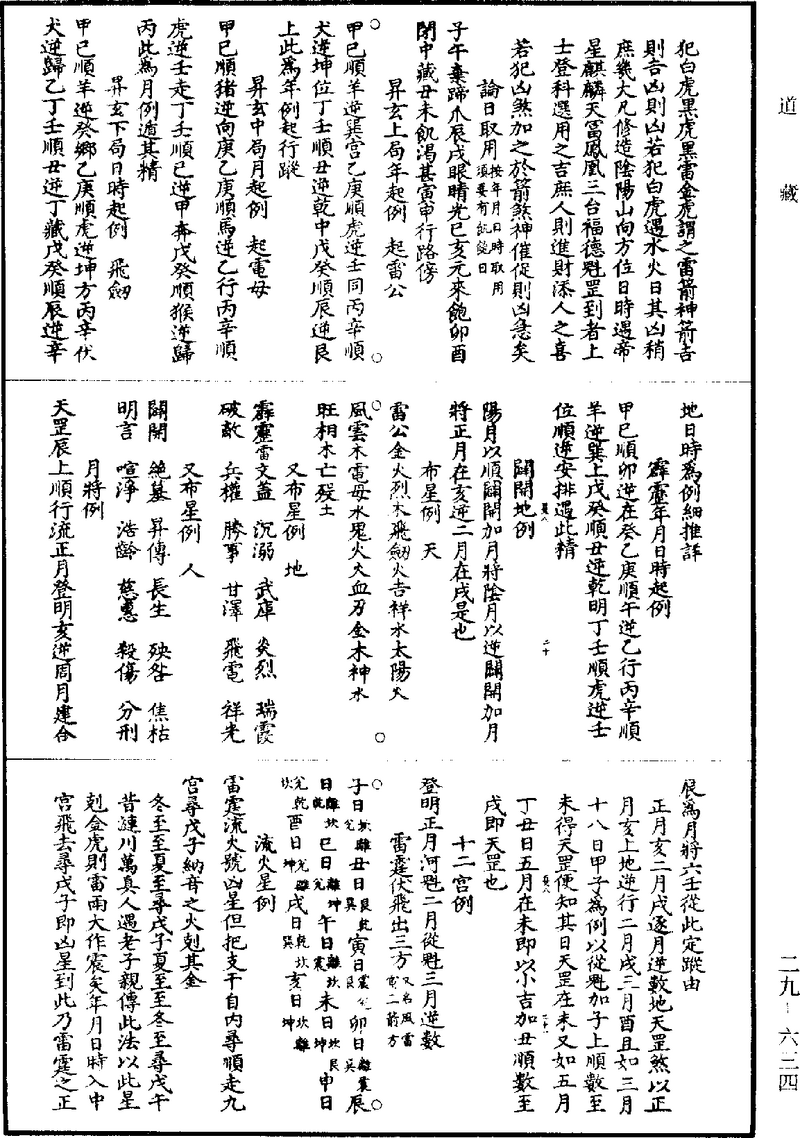 道藏
犯白虎黑虎黑雷金虎謂之雷箭神箭吉
則吉凶則凶若犯白虎遇水火日其凶稍
庶幾大凡修造陰陽山向方位日時遇帝
星麒麟天富鳳凰三台福德魁罡到者上
士登科選用之吉庶人則進財添人之喜
若犯凶煞加之於箭煞神催促則凶急矣
論日取用按年月日時取用須要有飢饒日
子午棄蹄爪辰戌眼睛光巳亥元來飽卯酉
閉中藏丑未飢渴甚寅申行路傍
昇玄上局年起例　起雷公
甲巳順羊逆巽宮乙庚順虎逆壬同丙辛順
犬逆坤位丁壬順丑逆乾中戊癸順辰逆艮
上此爲年例起行蹤
昇玄中局月起例　起電母
甲巳順猪逆向庚乙庚順馬逆乙行丙辛順
虎逆壬走丁壬順巳逆甲奔戊癸順猴逆歸
丙此爲月例遁其精
昇玄下局日時起例　飛劒
甲巳順羊逆癸鄉乙庚順虎逆坤方丙辛伏
犬逆歸乙丁壬順丑逆丁藏戊癸順辰逆辛
地日時爲例細推詳
霹靂年月日時起例
甲巳順卯逆在癸乙庚順午逆乙行丙辛順
羊逆巽上戊癸順丑逆乾明丁壬順虎逆壬
位順逆安排遇此精
關開地例
陽月以順關開加月將陰月以逆關開加月
將正月在亥逆二月在戌是也
布星例　天
雷公金火烈木飛劒火吉祥水太陽火
風雲木電母水鬼火火血刃金木神水
旺相木亡殘土
又布星例　地
霹靂雷文蓋　沉溺　武庫　炎烈　瑞霞
破敵　兵權　勝事　甘澤　飛電　祥光
又布星例　人
關開　絶墓　昇傳　長生　殃咎　焦枯
明言　喧淨　浩齡　慈惠　殺傷　分刑
月將例
天罡辰上順行流正月登明亥逆周月建合
辰爲月將六壬從此定蹤由
正月亥二月戌逐月逆數地天罡煞以正
月亥上地逆行二月戌三月酉且如三月
十八日甲子爲例以從魁加子上順數至
未得天罡便知其日天罡在未又如五月
丁丑日五月在未即以小吉加丑順數至
戌即天罡也
十二宮例
登明正月河魁二月從魁三月逆數
雷霆伏飛出三方
子日坎離兌丑日艮乾巽寅日震兌艮卯日離震巽辰
日離坎乾巳日離坤兌午日離坎震未日艮坎坤申日
兌乾坎酉日兌離坤戌日乾坎巽亥日坎離坤
流火星例
雷霆流火號凶星但把支干自內尋順走九
宮尋戊子納音之火剋其金
冬至至夏至尋戊子夏至至冬至尋戊午
昔漣川萬真人遇老子親傳此法以此星
剋金虎則雷雨大作震矣年月日時入中
宮飛去尋戊子即凶星到此乃雷霆之正
二九-六三四